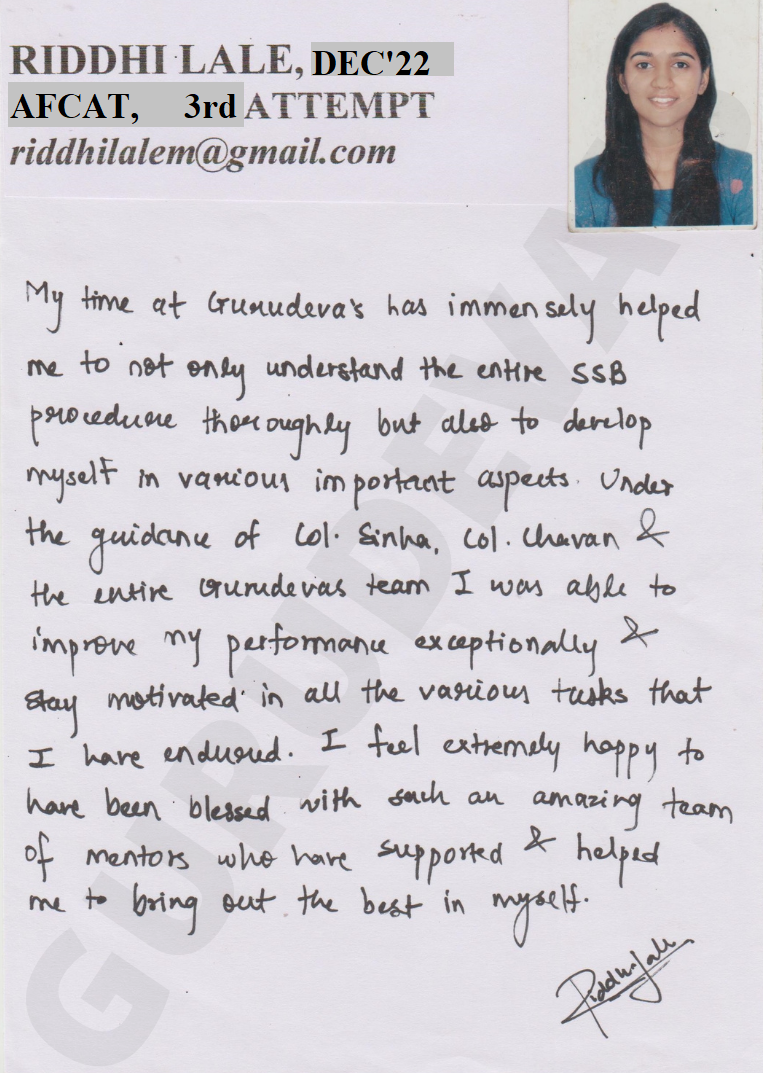 RIDDHI LALE, DEC'22
AFCAT, 3rd ATTEMPT
riddhilalem@gmail.com
My time at Gurudeva's has immensely helped
me to not only understand the entire SSB
procedure thoroughly but also to develop
myself in various important aspects. Under
the guidance of Col. Sinha, Col. Chavan &
the entire Gurudevas team I was able to
improve my performance exceptionally &
stay motivated in all the various tasks that
I have endured. I feel extremely happy to
have been blessed with such an amazing team
of mentors who have supported & helped
me to bring out the best in myself.
Riddhi Lale
GURUDEVA'S